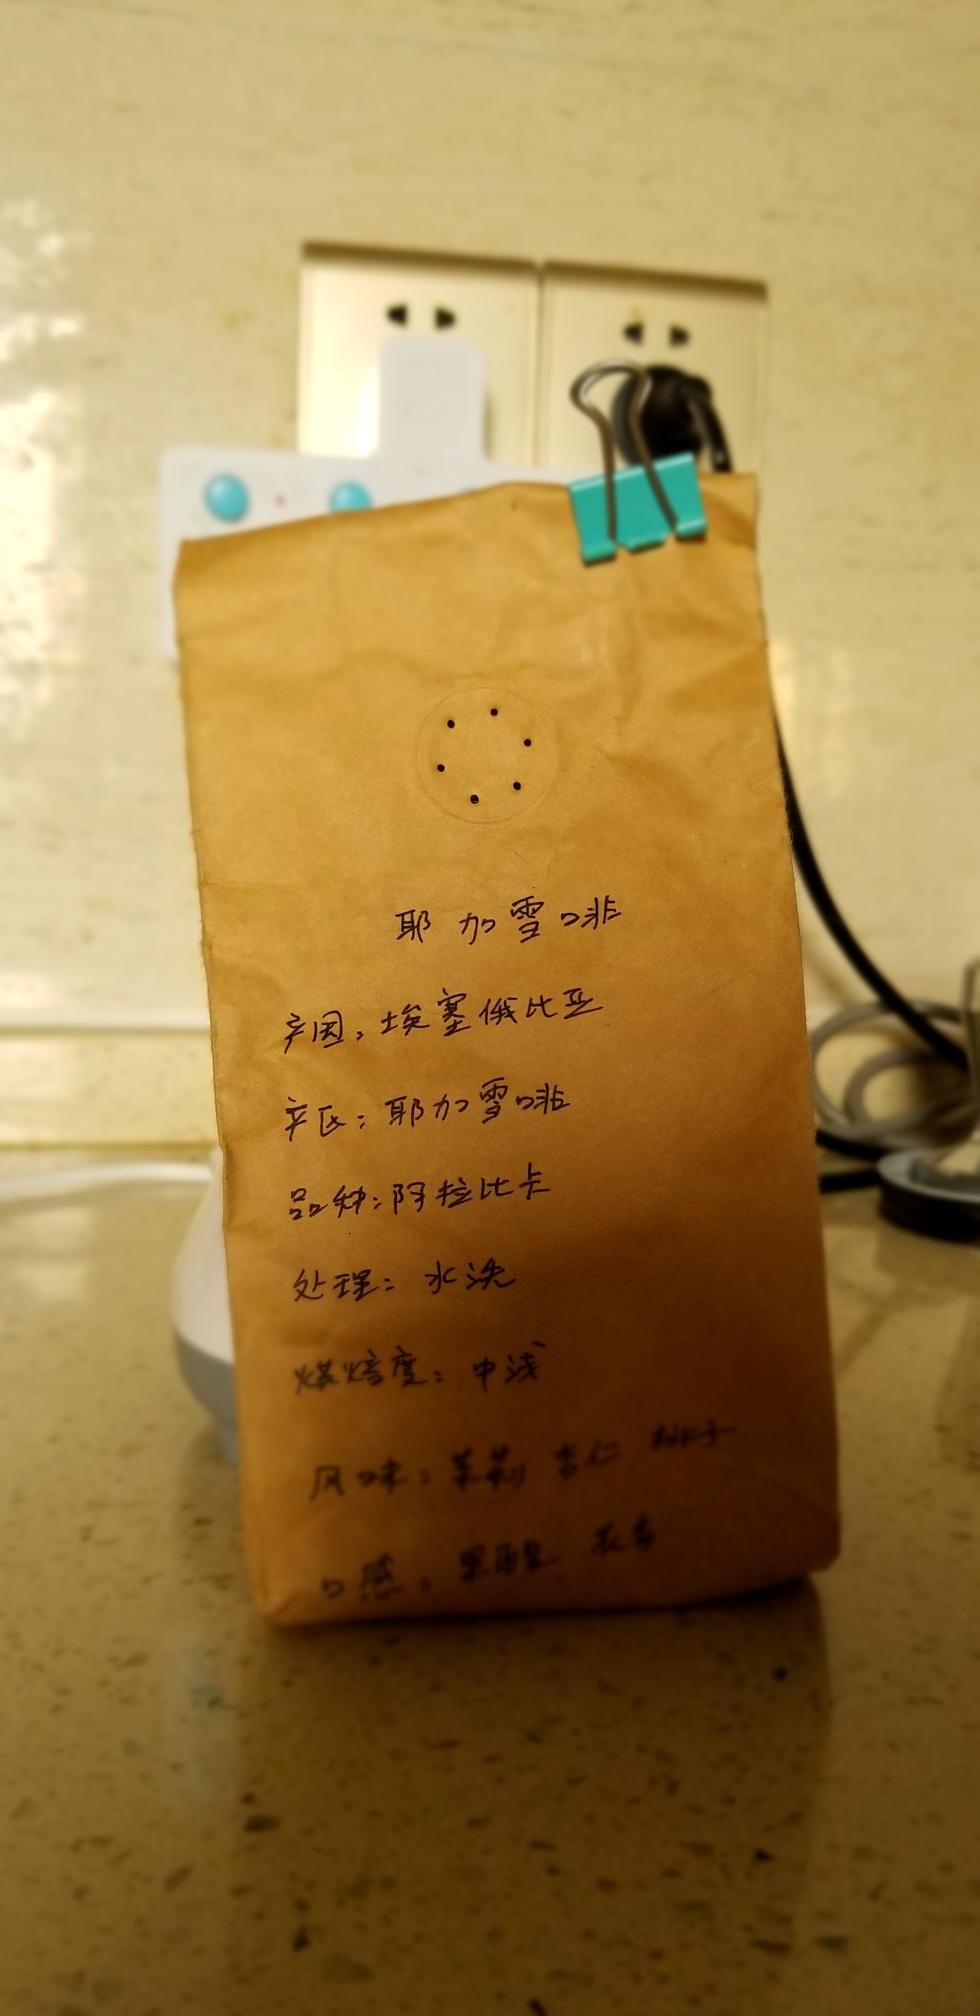 耶加雪啡
产国：埃塞俄比亚
产区：耶加雪啡
品种：阿拉比卡
处理：水洗
烘焙度：中浅
风味：茉莉 杏仁 桃子
口感：果酸 花香